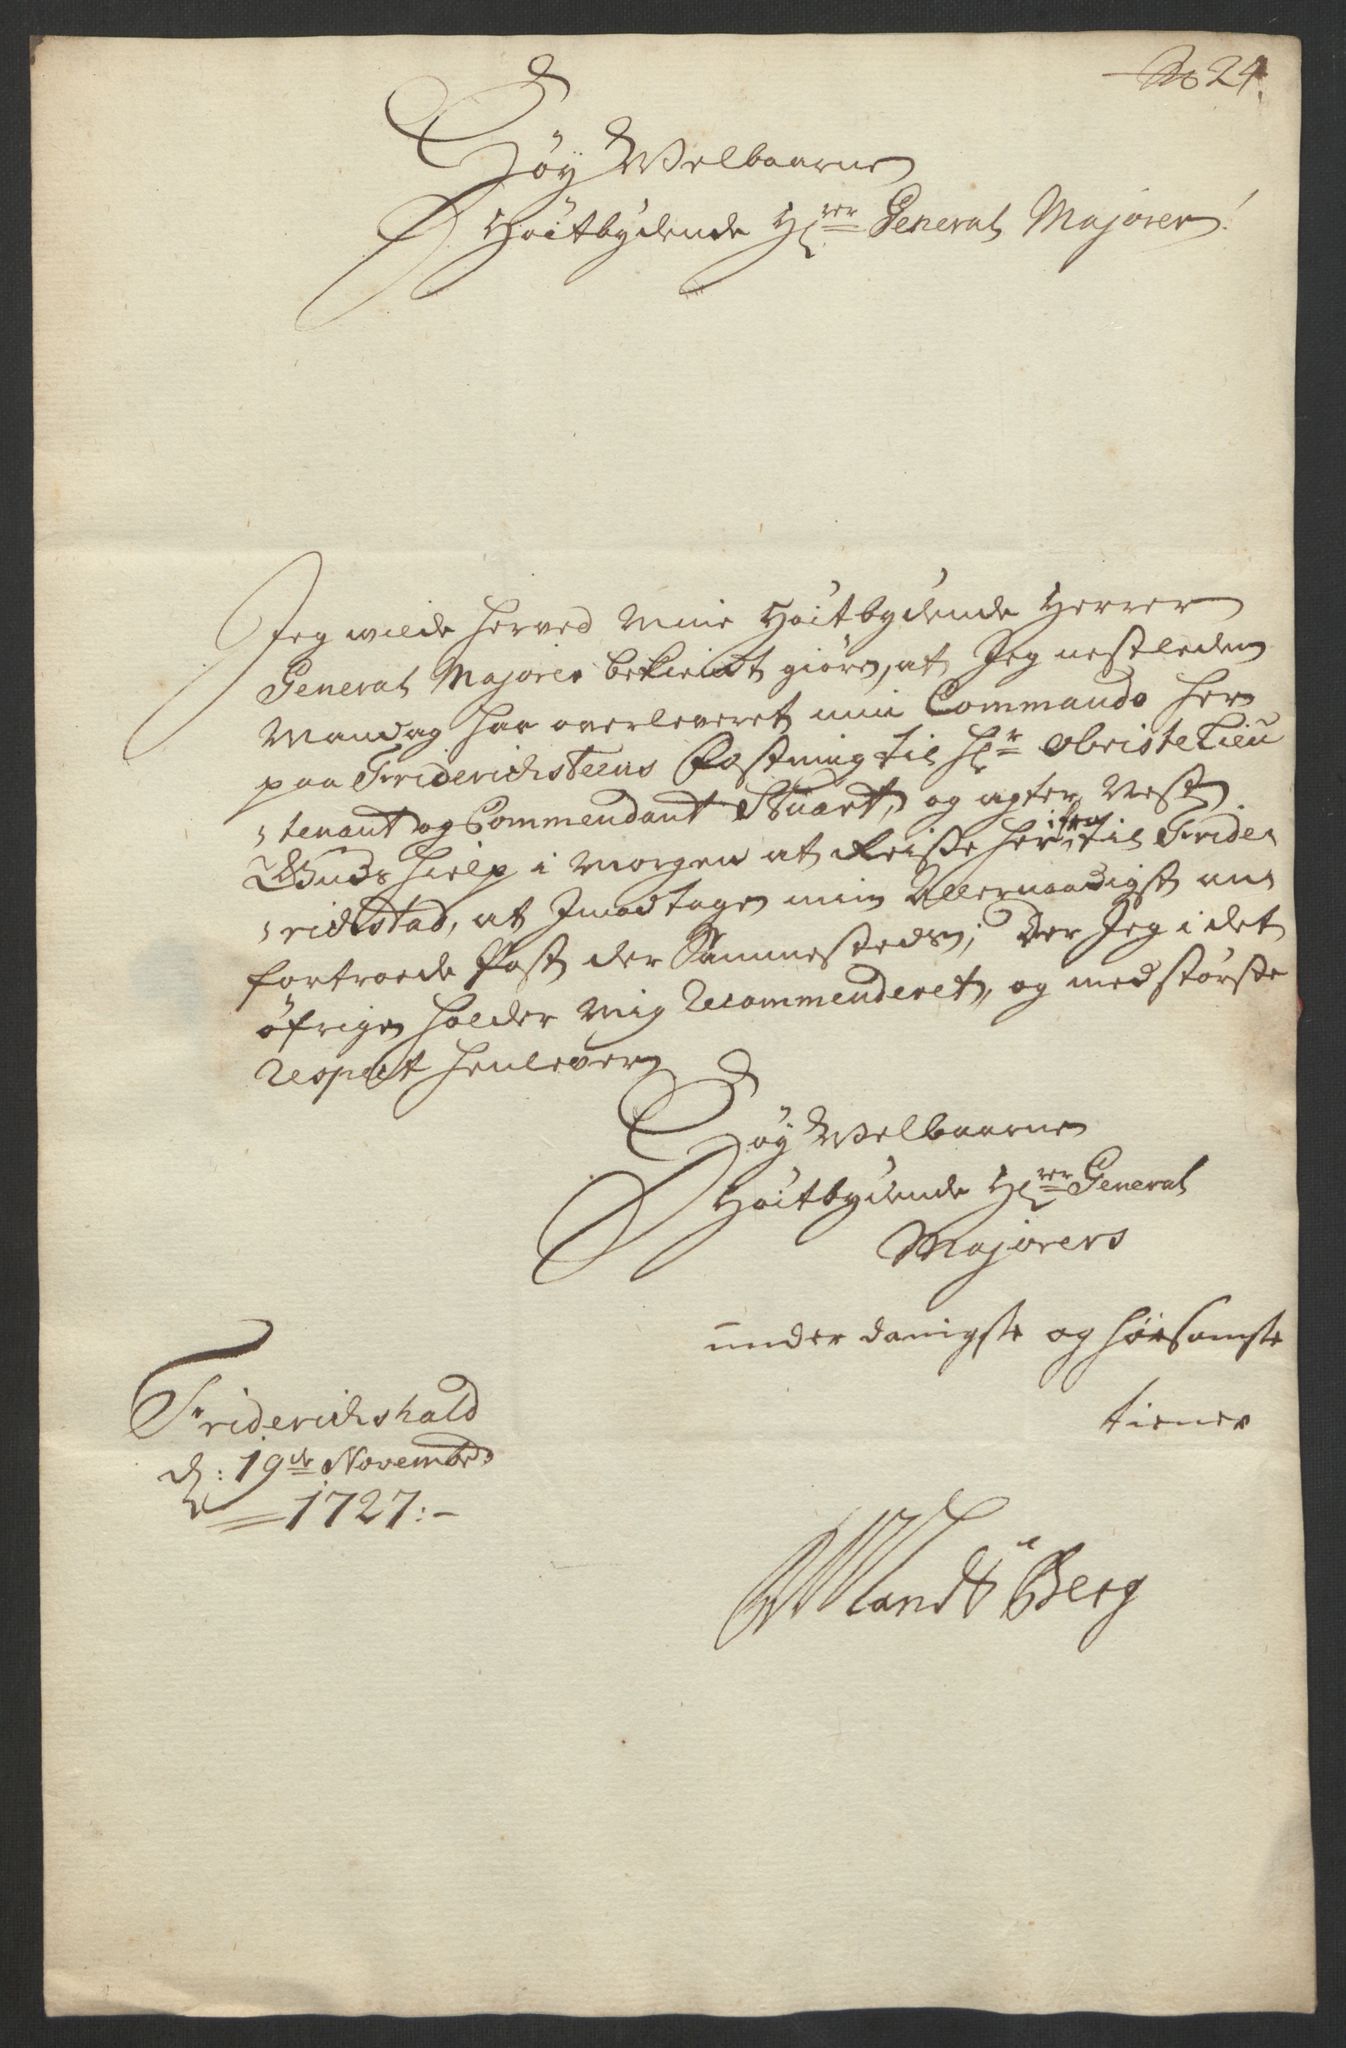 No 24.
Høy Welbaarne
Høitbydende Hrer General Majorer!
Jeg wilde herved Mine Høitbydende Herrer
General Majorer bekiendt giøre, at Jeg nestleden
Mandag har overleveret min Commando her
paa Friderichsteens Fæstning til Hr. Obriste Lieu
tenant og Commendant Stuart, og agter Nest
Guds hielp i Morgen at Reisse her ifra til Fride,
richstad, at Imodtage min Allernaadigst an
fortroede Post der Sammesteds; Der Jeg i det
øfrige holder Mig Recommenderet, og med største
respect henlever
Høy Welbaarne
Høitbydende Hrer General
Majorers
underdanigste og hørsomste
tiener
Friderichshald
d: 19de Novembr
1727:-
Landtberg